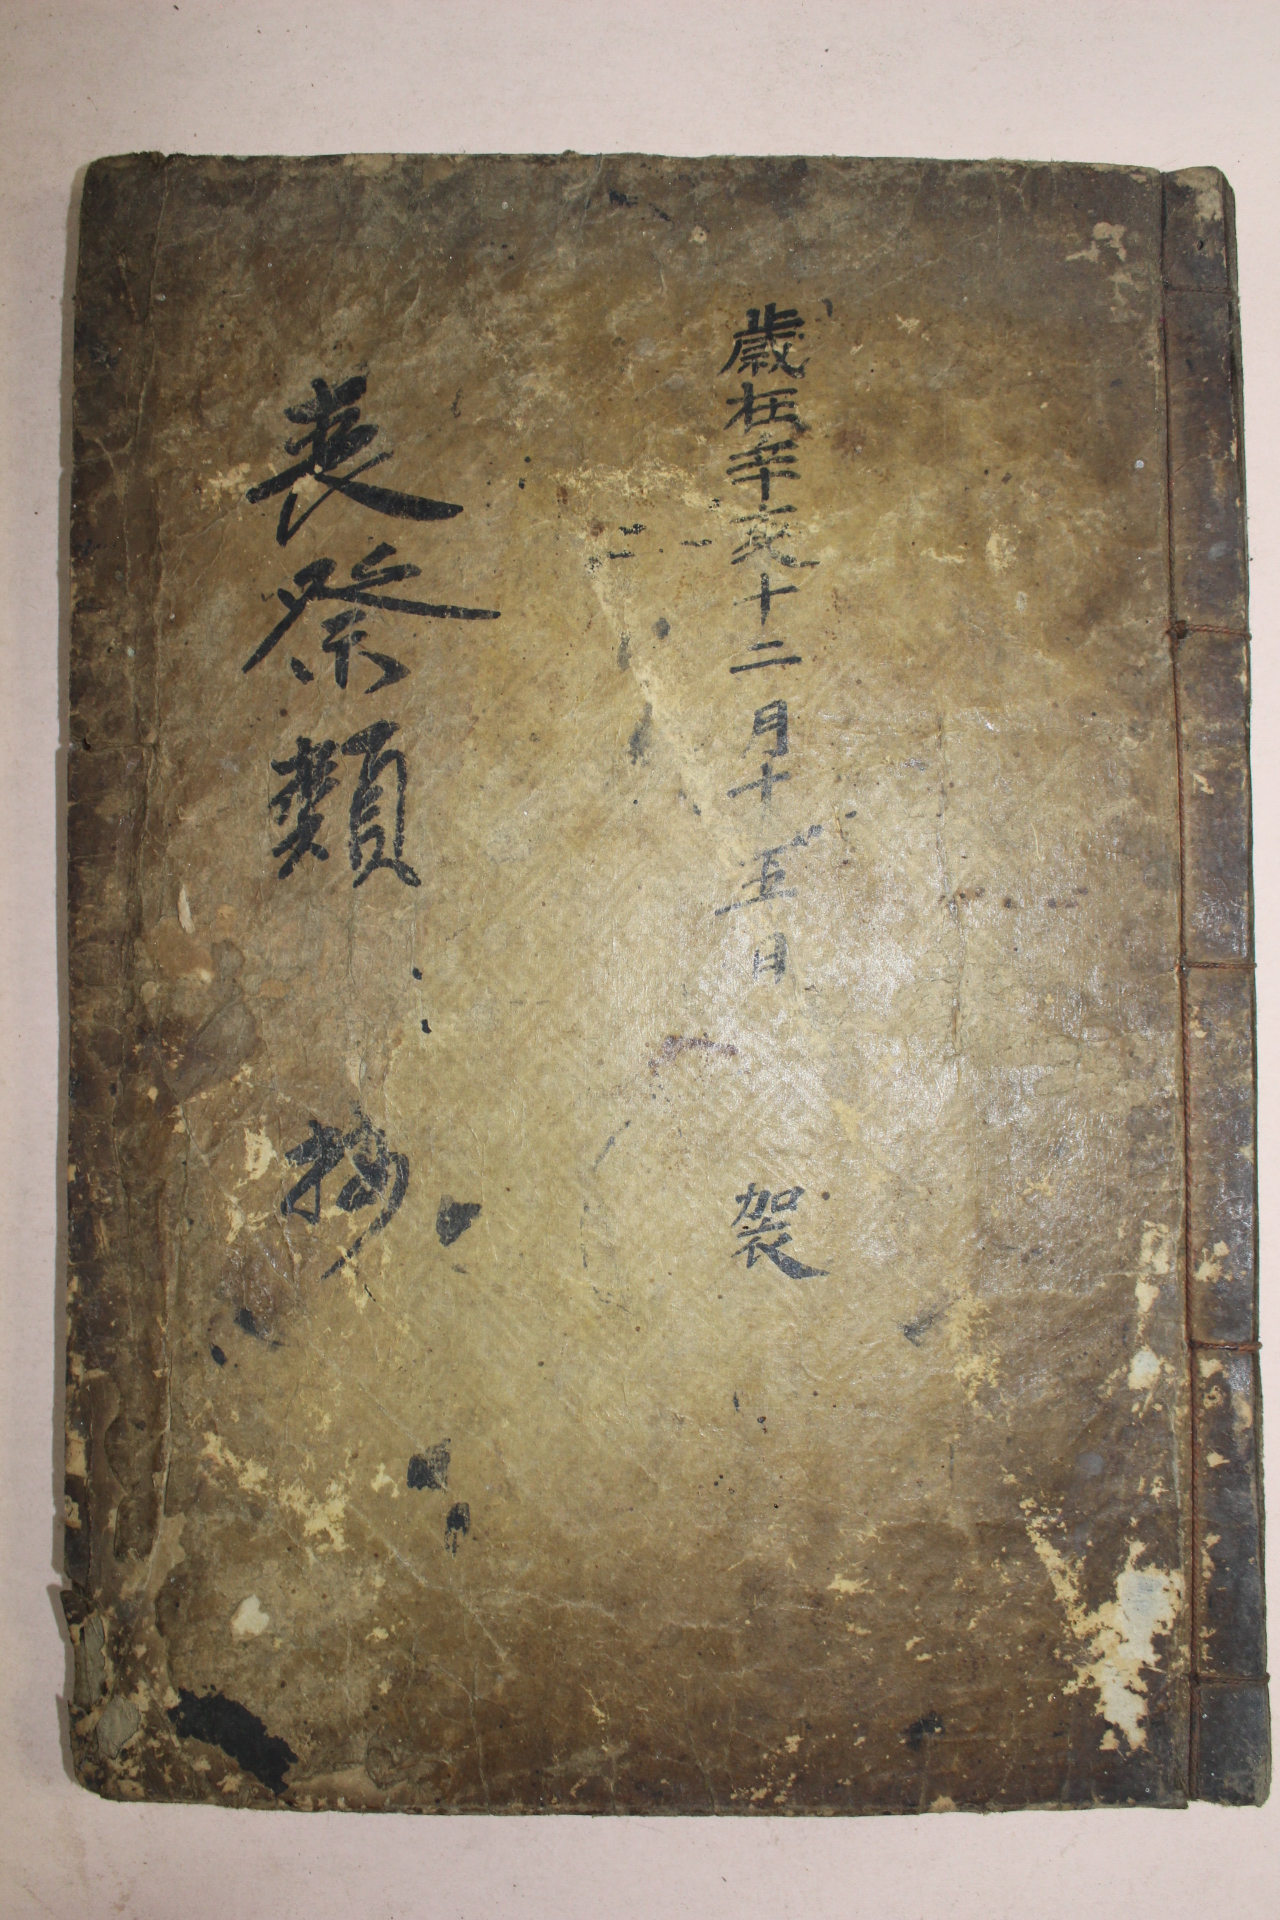 歲在辛亥十二月十五日 袈
喪祭類 抄